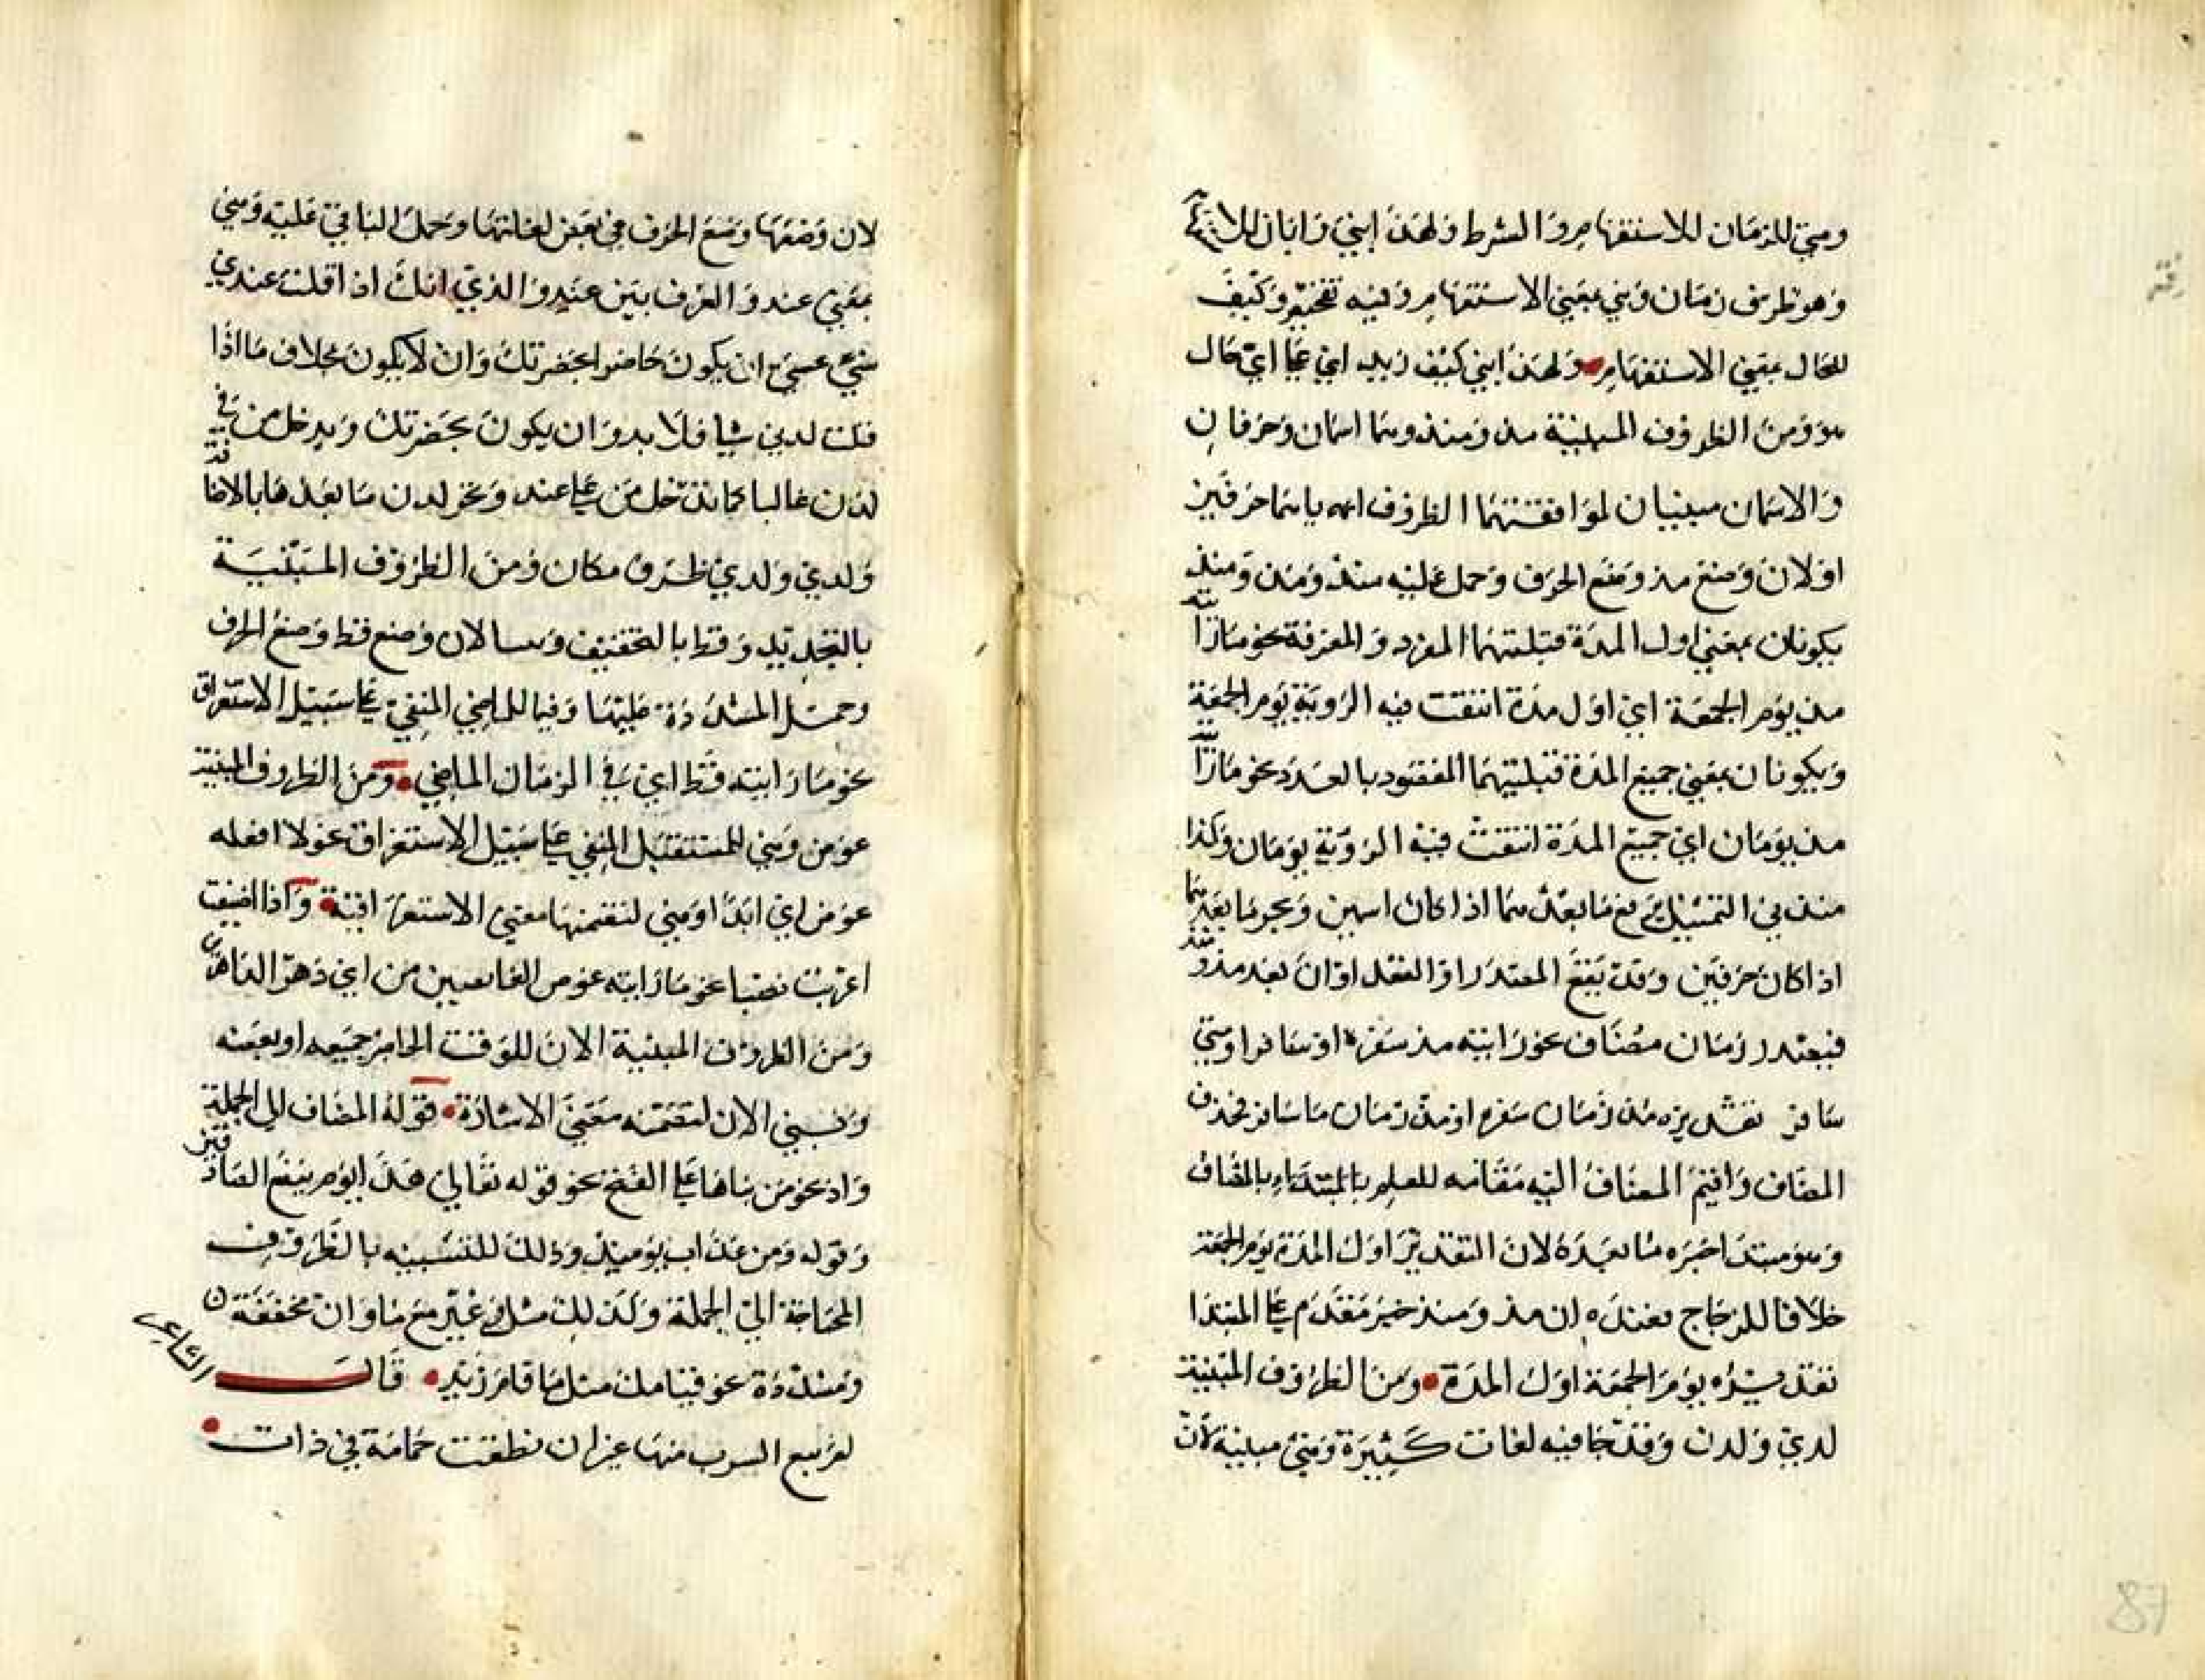 ومتي للزمان للاستفهام والشرط ولهذا ابني وايان للاستفهام
وهو ظرف زمان وبني بمعني الاستفهام وفيه تفخيم وكيف
للحال بمعني الاستفهام ولهذا ابني كيف زيد اي علي اي حال
هو ومن الظروف المبنية مذ ومنذ وهما اسمان وحرفان
والاسمان مبنيان لموافقتهما الظروف اياهما حرفين
او لان وضع مذ وضع الحرف وحمل عليه منذ ومذ ومنذ
يكونان بمعني اول المدة فيليهما المفرد والمعرفة نحو ما رايته
مذ يوم الجمعة اي اول مدة انتفت فيه الروية يوم الجمعة
ويكونان بمعني جميع المدة فيليهما المقصود بالعدد نحو ما رايته
مذ يومان اي جميع المدة انتفت فيه الروية يومان وكذا
منذ في التمثيل يرفع ما بعدهما اذا كان اسمين ويجر ما بعدهما
اذا كان حرفين وقد يقع المصدر او الفعل او ان بعد مذ ومنذ
فيقدر زمان مضاف نحو رايته مذ سفره او سافر او متي
سافر تقديره مذ زمان سفره او مذ زمان ما سافر فحذف
المضاف واقيم المضاف اليه مقامه للعلم بالمبتداء بالمضاف
وهو مبتدا خبره ما بعده لان التقدير اول المدة يوم الجمعة
خلافا للزجاج فعنده ان مذ ومنذ خبر مقدم علي المبتدا
تقديره يوم الجمعة اول المدة ومن الظروف المبنية
لدي ولدن وقد جا فيه لغات كثيرة وهي مبنية لان
لان وضعها وضع الحرف في بعض لغاتها وحمل الباقي عليه وهي
بمعني عند والفرق بين عند والذي انك اذا قلت عندي
شي عسي ان يكون حاضرا بحضرتك وان لا يكون بخلاف ما اذا
قلت لدي شيا فلا بد وان يكون بحضرتك ويدخل من في
لدن غالبا كما تدخل من علي عند وتجر لدن ما بعدها بالاضافة
ولدي ولدي ظرف مكان ومن الظروف المبنية
بالتجديد وقط بالتخفيف وهما لان وضع قط وضع الحرف
وحمل المشددة عليها وفيا للماضي المنفي علي سبيل الاستغراق
نحو ما رايته قط اي في الزمان الماضي ومن الظروف المبنية
عوض وهي للمستقبل المنفي علي سبيل الاستغراق نحو لا افعله
عوض اي ابدا وبني لتضمنها معني الاستغراقية واذا اضيفت
اعربت نصبا نحو ما رايته عوض العايضين من اي دهر الداهرين
ومن الظروف المبنية الان للوقت الحاضر جميعه او بعضه
وبني الان لتضمنه معني الاشارة قوله المضاف الي الجملة
واذ نحو من بناها علي الفتح نحو قوله تعالي هذا يوم ينفع الصادقين
وقوله ومن عذاب يوميذ وذلك للتشبيه بالظروف
المحتاجة الي الجملة وكذلك مثل في غير مع ما وان مخففة
ومشددة نحو قيامك مثل ما قام زيد قال الشاعر
لم يمنع الشرب منها غير ان نطقت حمامة في ذات
87